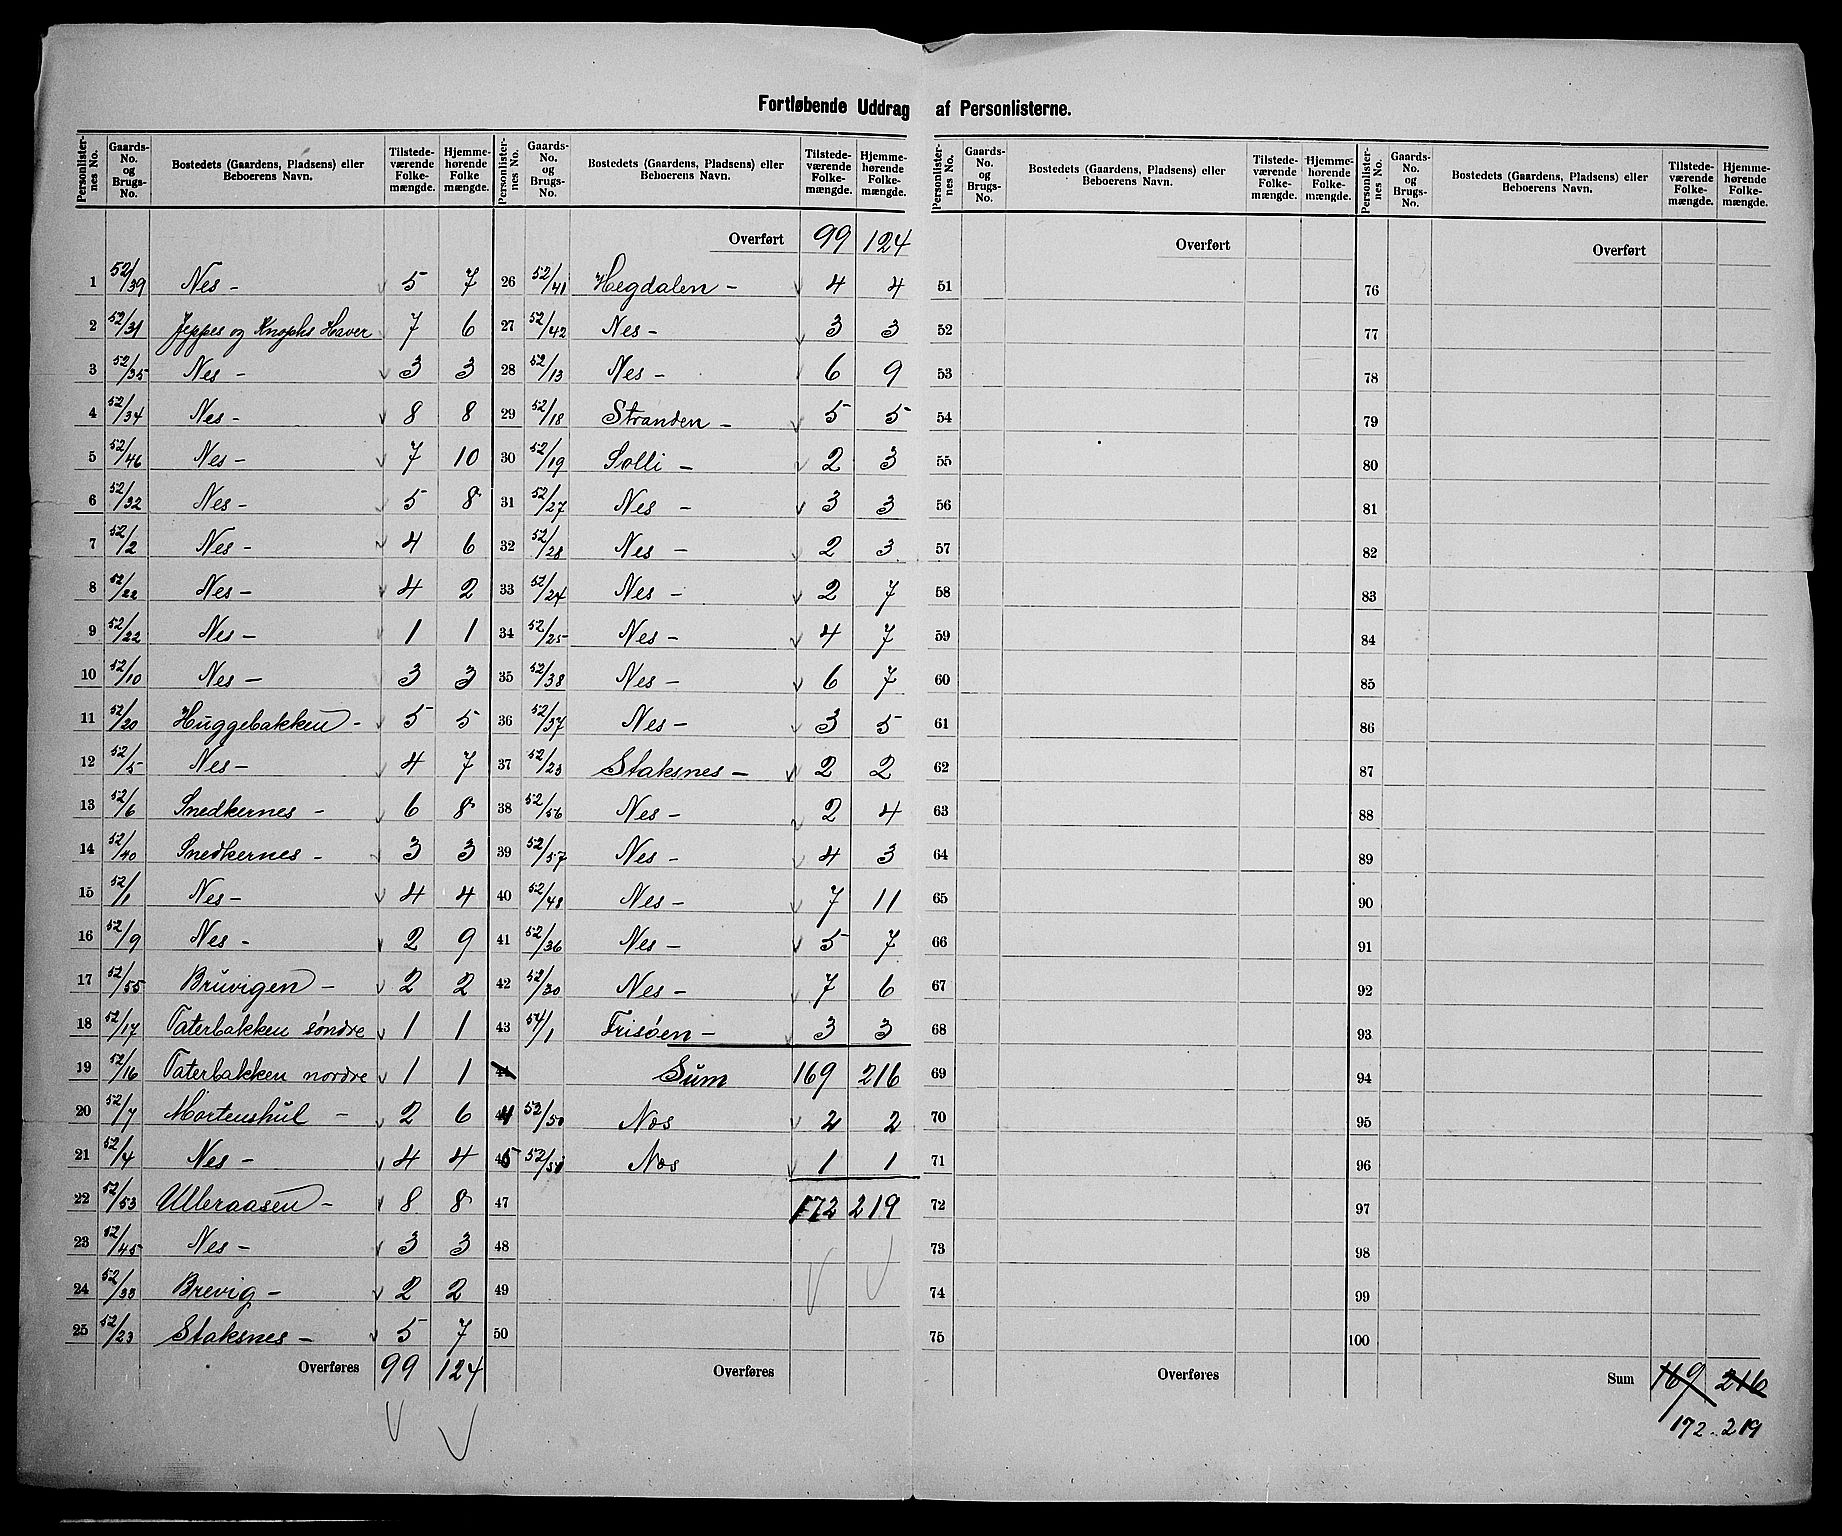 Fortløbende Uddrag af Personlisterne.
Personlisternes No. | Gaards-No. og Brugs-No. | Bostedets (Gaardens, Pladsens) eller Beboerens Navn. | Tilstedeværende Folkemængde. | Hjemmehørende Folkemængde.
1 52/39 Nes - 5 7
2 52/31 Jeppes og Knophs Haver 7 6
3 52/35 Nes - 3 3
4 52/34 Nes - 8 8
5 52/46 Nes - 7 10
6 52/32 Nes - 5 8
7 52/2 Nes - 4 6
8 52/22 Nes - 4 2
9 52/22 Nes - 1 1
10 52/10 Nes - 3 3
11 52/20 Huggebakken - 5 5
12 52/5 Nes - 4 7
13 52/6 Snedkernes - 6 8
14 52/40 Snedkernes - 3 3
15 52/1 Nes - 4 4
16 52/9 Nes - 2 9
17 52/55 Bruvigen - 2 2
18 52/17 Taterbakken søndre 1 1
19 52/16 Taterbakken nordre 1 1
20 52/7 Mortenshul - 2 6
21 52/4 Nes - 4 4
22 52/53 Ulleraasen - 8 8
23 52/45 Nes - 3 3
24 52/33 Brevig - 2 2
25 52/23 Staksnes - 5 7
Overføres 99 124
Personlisternes No. | Gaards-No. og Brugs-No. | Bostedets (Gaardens, Pladsens) eller Beboerens Navn. | Tilstedeværende Folkemængde. | Hjemmehørende Folkemængde.
Overført 99 124
26 52/41 Hegdalen - 4 4
27 52/42 Nes - 3 3
28 52/13 Nes - 6 9
29 52/18 Stranden - 5 5
30 52/19 Solli - 2 3
31 52/27 Nes - 3 3
32 52/28 Nes - 2 3
33 52/24 Nes - 2 7
34 52/25 Nes - 4 7
35 52/38 Nes - 6 7
36 52/37 Nes - 3 5
37 52/23 Staksnes - 2 2
38 52/56 Nes - 2 4
39 52/57 Nes - 4 3
40 52/48 Nes - 7 11
41 52/36 Nes - 5 7
42 52/30 Nes - 7 6
43 54/1 Frisøen - 3 3
44 Sum 169 216
44 52/50 Nes 2 2
45 52/51 Nes 1 1
47 172 219
48
49
50
Overføres
Personlisternes No. | Gaards-No. og Brugs-No. | Bostedets (Gaardens, Pladsens) eller Beboerens Navn. | Tilstedeværende Folkemængde. | Hjemmehørende Folkemængde.
Overført
51
52
53
54
55
56
57
58
59
60
61
62
63
64
65
66
67
68
69
70
71
72
73
74
75
Overføres
Personlisternes No. | Gaards-No. og Brugs-No. | Bostedets (Gaardens, Pladsens) eller Beboerens Navn. | Tilstedeværende Folkemængde. | Hjemmehørende Folkemængde.
Overført
76
77
78
79
80
81
82
83
84
85
86
87
88
89
90
91
92
93
94
95
96
97
98
99
100
Sum 169 216
172 - 219